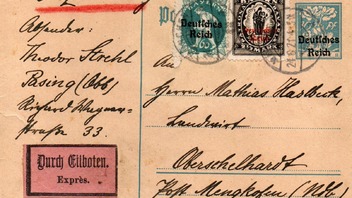 Absender:
Theodor Strehl
Pasing (Obb)
Richard Wagner-
straße 33.
Durch Eilboten.
Exprès.
Deutsches
Reich
Deutsches
Reich
An
Herrn Mathias Harlbeck,
Landwirt
Oberschellhardt
Post Mengkofen (Ndb)